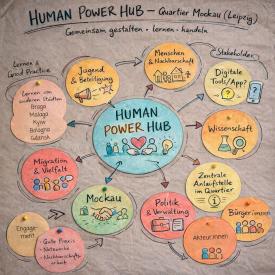 HUMAN POWER HUB – Quartier Mockau (Leipzig)
Gemeinsam gestalten • lernen • handeln
Lernen &
Good Practice
Jugend &
Beteiligung
Menschen
& Nachbarschaft
Stakeholder
Digitale
Tools/App?
Lernen von
anderen Städten
Braga
Malaga
Kyiw
Bologna
Gdansk
HUMAN
POWER HUB
Wissenschaft
Migration
& Vielfalt
Zentrale
Anlaufstelle
im Quartier
Mockau
Politik
& Verwaltung
Bürger:innen
Engage-
ment
Gute Praxis
• Netzwerke
• Nachbarschafts-
arbeit
Akteur:innen